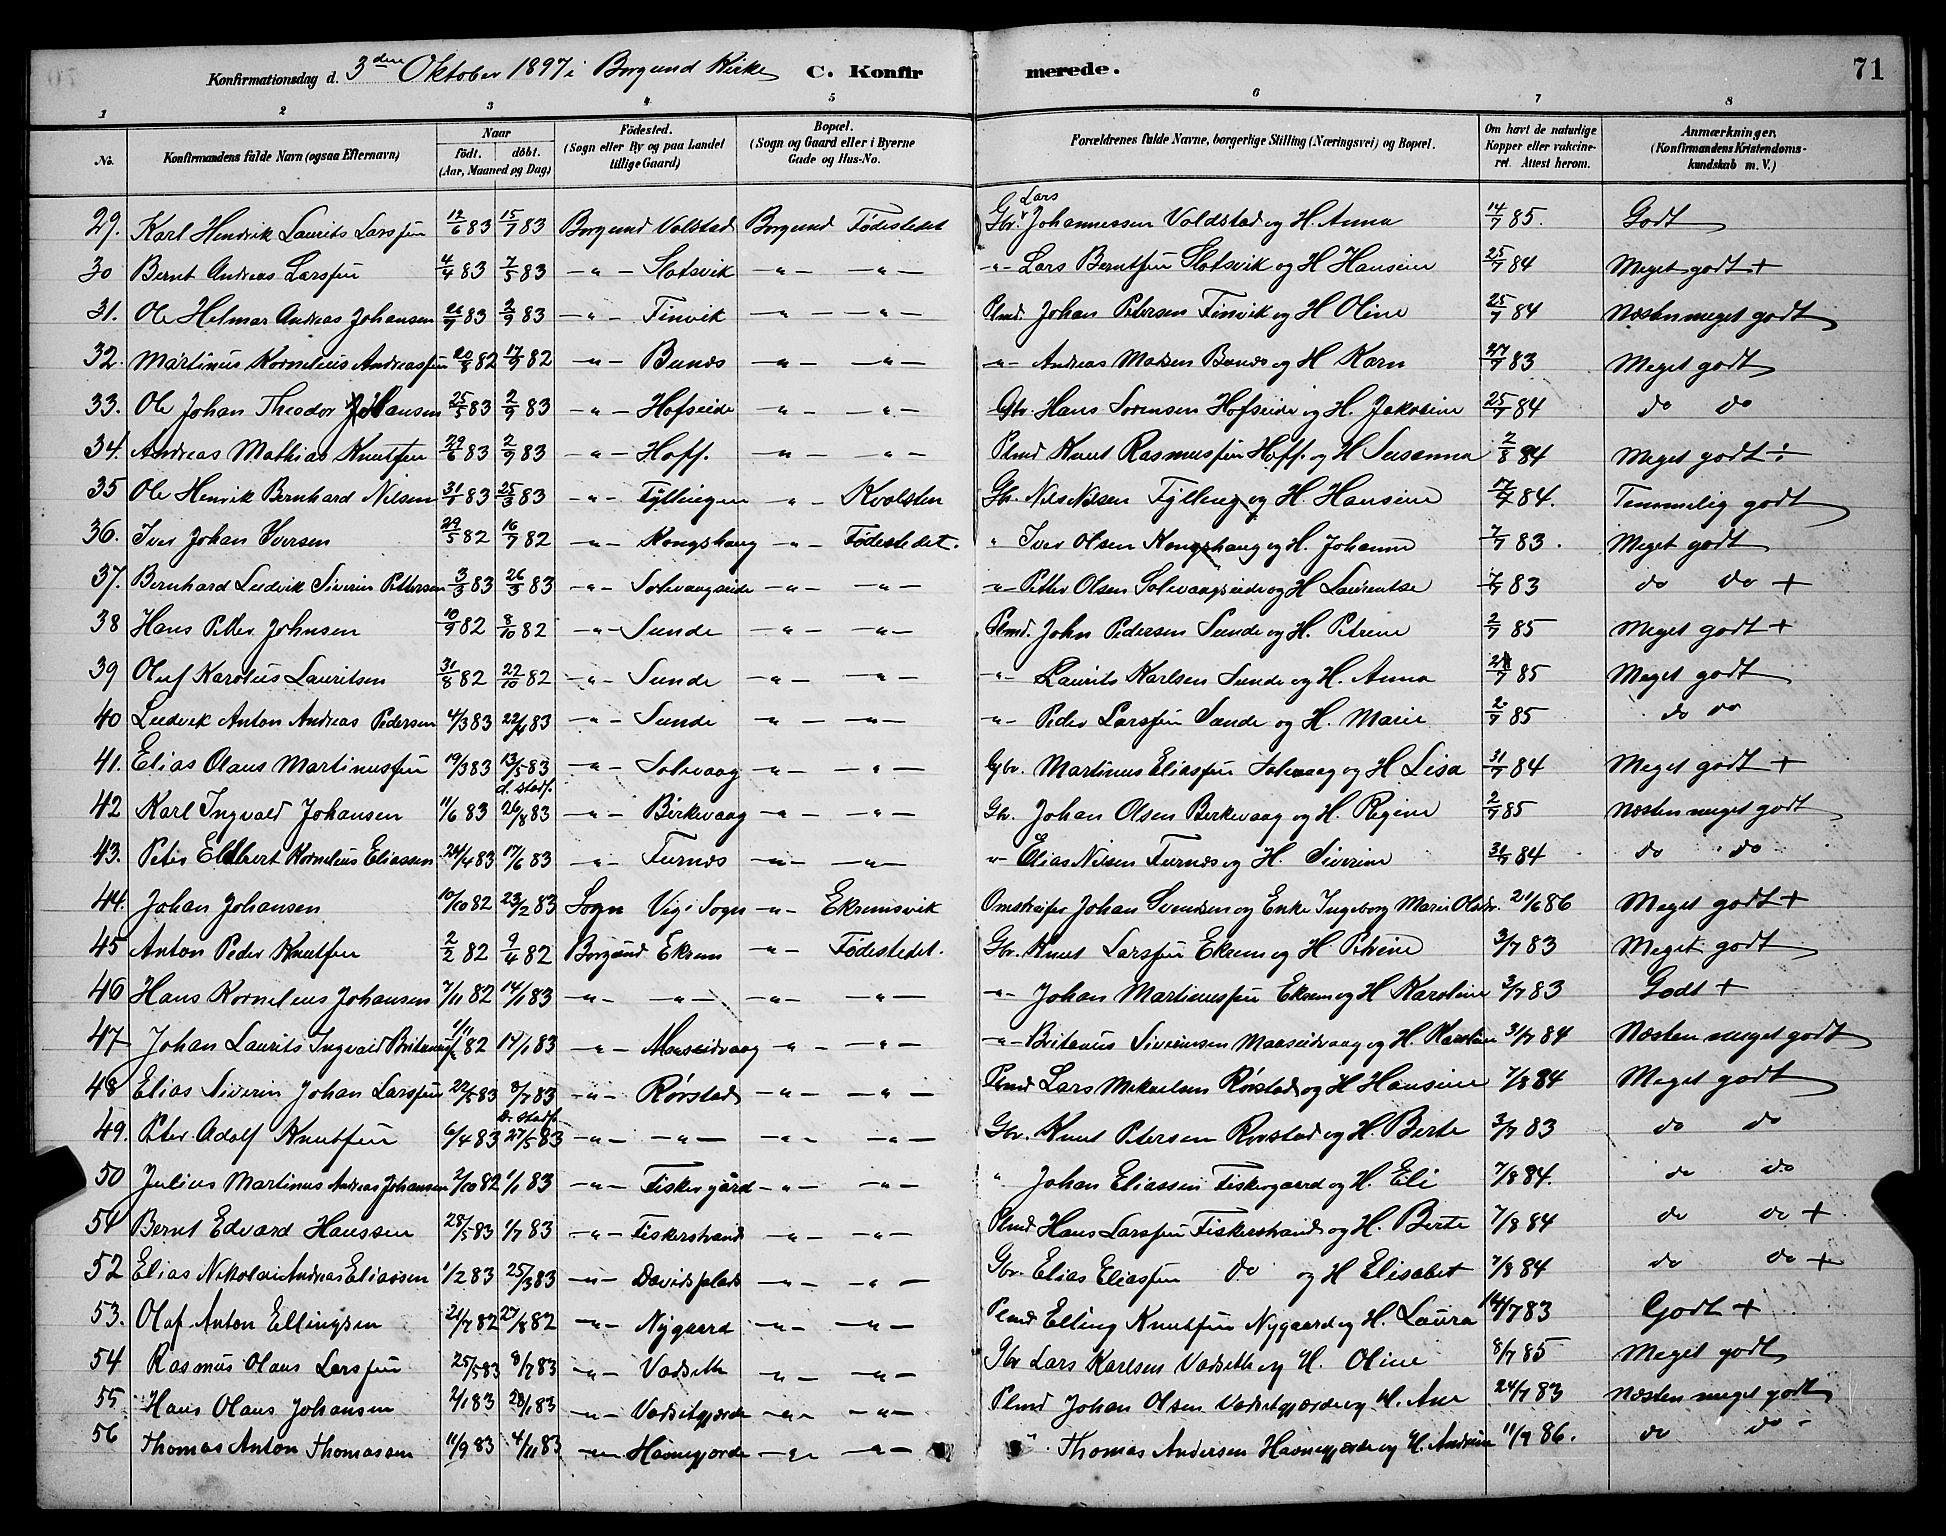 Konfirmationsdag d. 3den Oktober 1897 i Borgund Kirke C. Konfirmerede. 71
1 2 3 4 5 6 7 8
No. Konfirmandens fulde Navn (ogsaa Efternavn) Naar født. døbt. (Aar, Maaned og Dag) Fødested. (Sogn eller By og paa Landet tillige Gaard) Bopæl. (Sogn og Gaard eller i Byerne Gade og Hus-No. Forældrenes fulde Navne, borgerlige Stilling (Næringsvei) og Bopæl. Om havt de naturlige Kopper eller vakcineret. Attest herom. Anmærkninger, (Konfirmandens Kristendomskundskab m. V.)
29. Karl Hendrik Laurits Larssen 12/6 83 15/7 83 Borgund Volstad Borgund Fødestedet Gbr. Lars Johannessen Voldstad og H. Anna 14/7 85. Godt
30 Bernt Andreas Larssen 4/4 83 7/5 83 -"- Slotsvik -"- -"- -"- Lars Berntsen Slotsvik og H Hansine 25/7 84 Meget godt +
31. Ole Helmar Andreas Johansen 26/7 83 2/9 83 -"- Finvik -"- -"- Plmd. Johan Petersen Finvik og H Oline 25/7 84 Næsten meget godt
32. Martinus Kornelius Andreassen 20/8 82 17/9 82 -"- Bunes -"- -"- -"- Andreas Madsen Bunes og H Karn 27/7 83 Meget godt
33. Ole Johan Theodor Hansen 25/5 83 2/9 83 -"- Hofseide -"- -"- Gbr. Hans Sørensen Hofseide og H. Jakobine 25/7 84 do do
34. Andreas Mathias Knutsen 29/6 83 2/9 83 -"- Hoff. -"- -"- Plmd Knut Rasmussen Hoff. og H Susanna 2/8 84 Meget godt ÷
35 Ole Henrik Bernhard Nilsen 31/1 83 25/3 83 -"- Fyllingen -"- Kvalsten Gb. Nils Nilsen Fylling og H. Hansine 17/7 84. Temmelig godt
36. Iver Johan Iversen 29/5 82 16/7 82 -"- Kongshaug -"- Fødestedet. " Iver Olsen Kongshaug og H. Johanne 7/7 83. Meget godt
37. Bernhard Ludvik Siverin Pettersen 3/3 83 26/3 83 -"- Solevaagseide -"- -"- -"- Petter Olsen Solevaagseide og H Laurentse 7/7 83 do do +
38 Hans Petter Johnsen 10/9 82 8/10 82 -"- Sunde -"- -"- Plmd. John Pedersen Sunde og H. Petrine 2/7 85 Meget godt +
39 Oluf Karolus Lauritsen 31/8 82 22/10 82 -"- Sunde -"- -"- -"- Laurits Karlsen Sunde og H. Anna 2/7 85 Meget godt
40 Ludvik Anton Andreas Pedersen 4/3 83 22/4 83 -"- Sunde -"- -"- -"- Peder Larssen Sunde og H. Marie 2/7 85 do do
41. Elias Olaus Martinussen 19/3 83 13/5 83 d. stadf. -"- Solevaag -"- -"- Gbr. Martinus Eliassen Solevaag og H Lisa 31/7 84 Meget godt +
42 Karl Ingvald Johansen 11/6 83 26/8 83 -"- Birkevaag -"- -"- Gb. Johan Olsen Birkevaag og H. Regine 2/7 85 Næsten meget godt
43. Peter Elbert Kornelius Eliassen 24/4 83 17/6 83 -"- Furnes -"- -"- -"- Elias Nilsen Furnes og H. Siverine 31/7 84 do do
44. Johan Johansen 10/10 82 23/2 83 Sogn Vig i Sogn -"- Eksemsvik Omstreifer Johan Svendsen og Enke Ingeborg Marie Olsdr. 21/6 86 Meget godt +
45 Anton Peder Knutsen 2/2 82 9/4 82 Borgund Eksem -"- Fødestedet. Gbr. Knut Larssen Eksem og H Petrine 3/7 83 Meget godt
46 Hans Kornelius Johansen 7/11 82 14/1 83 -"- -"- -"- -"- -"- Johan Martinussen Eksem og H Karoline 3/7 83 Godt +
47 Johan Laurits Ingvald Britanus. 1/11 82 14/1 83 -"- Maseidvaag -"- -"- -"- Britanus Siverinsen Maaseidvaag og H. Karoline 31/7 84 Næsten meget godt
48 Elias Siverin Johan Larssen 22/5 83 8/7 83 d. stadf. -"- Rørstad -"- -"- Plmd Lars Mikaelsen Rørstad og H Hansine 7/8 84 Meget godt
49. Peter Adolf Knutsen 6/4 83 27/5 83 -"- -"- -"- -"- Gbr. Knut Petersen Rørstad og H. Berte 3/7 83 do do
50 Julius Martinus Andreas Johansen 2/10 82 1/1 83 -"- Fiskergård -"- -"- " Johan Eliassen Fiskergaard og H. Eli 7/8 84. do do
51 Bernt Edvard Hanssen 28/5 83 1/7 83 -"- Fiskerstrand -"- -"- Plmd Hans Larssen Fiskerstrand og H. Berte 7/8 84 do do +
52 Elias Nikolai Andreas Eliassen 1/2 83 25/3 83 -"- Davidsplads -"- -"- Gbr. Elias Eliassen do og H Elisabet 7/8 84 do do +
53. Olaf Anton Ellingsen 21/7 82 27/8 82 -"- Nygaard -"- -"- Plmd Elling Knutsen Nygaard og H. Laura 14/7 83 Godt +
54 Rasmus Olaus Larssen 25/5 83 8/7 83 -"- Vadseth -"- -"- Gbr Lars Karlsen Vadseth og H. Oline 8/7 85 Meget godt
55 Hans Olaus Johansen 2/1 83 28/1 83 -"- Vadsetgjerde -"- -"- Plmd Johan Olsen Vadsetgjerde og H. Ane 24/7 83 Næsten meget godt
56 Thomas Anton Thomassen 11/9 83 4/11 83 -"- Havnegjerde -"- -"- " Thomas Andersen Havnegjerde og H. Andrine 11/9 86. do do -